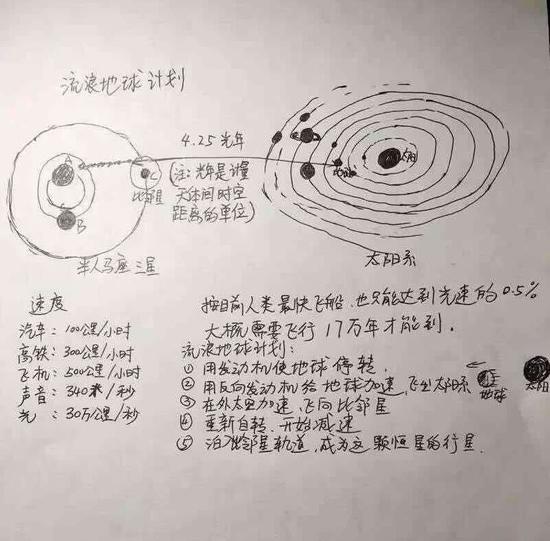 流浪地球计划
4.25光年
(注:光年是计量
天体间时空
距离的单位)
A
B
C
比邻星
地球
太阳
半人马座三星
太阳系
速度
汽车:100公里/小时
高铁:300公里/小时
飞机:500公里/小时
声音:340米/秒
光:30万公里/秒
按目前人类最快飞船,也只能达到光速的0.5%
大概需要飞行17万年才能到.
流浪地球计划:
① 用发动机使地球停转.
② 用反向发动机给地球加速,飞出太阳系
③ 在外太空加速,飞向比邻星
④ 重新自转.开始减速
⑤ 泊入比邻星轨道,成为这颗恒星的行星.
地球
太阳